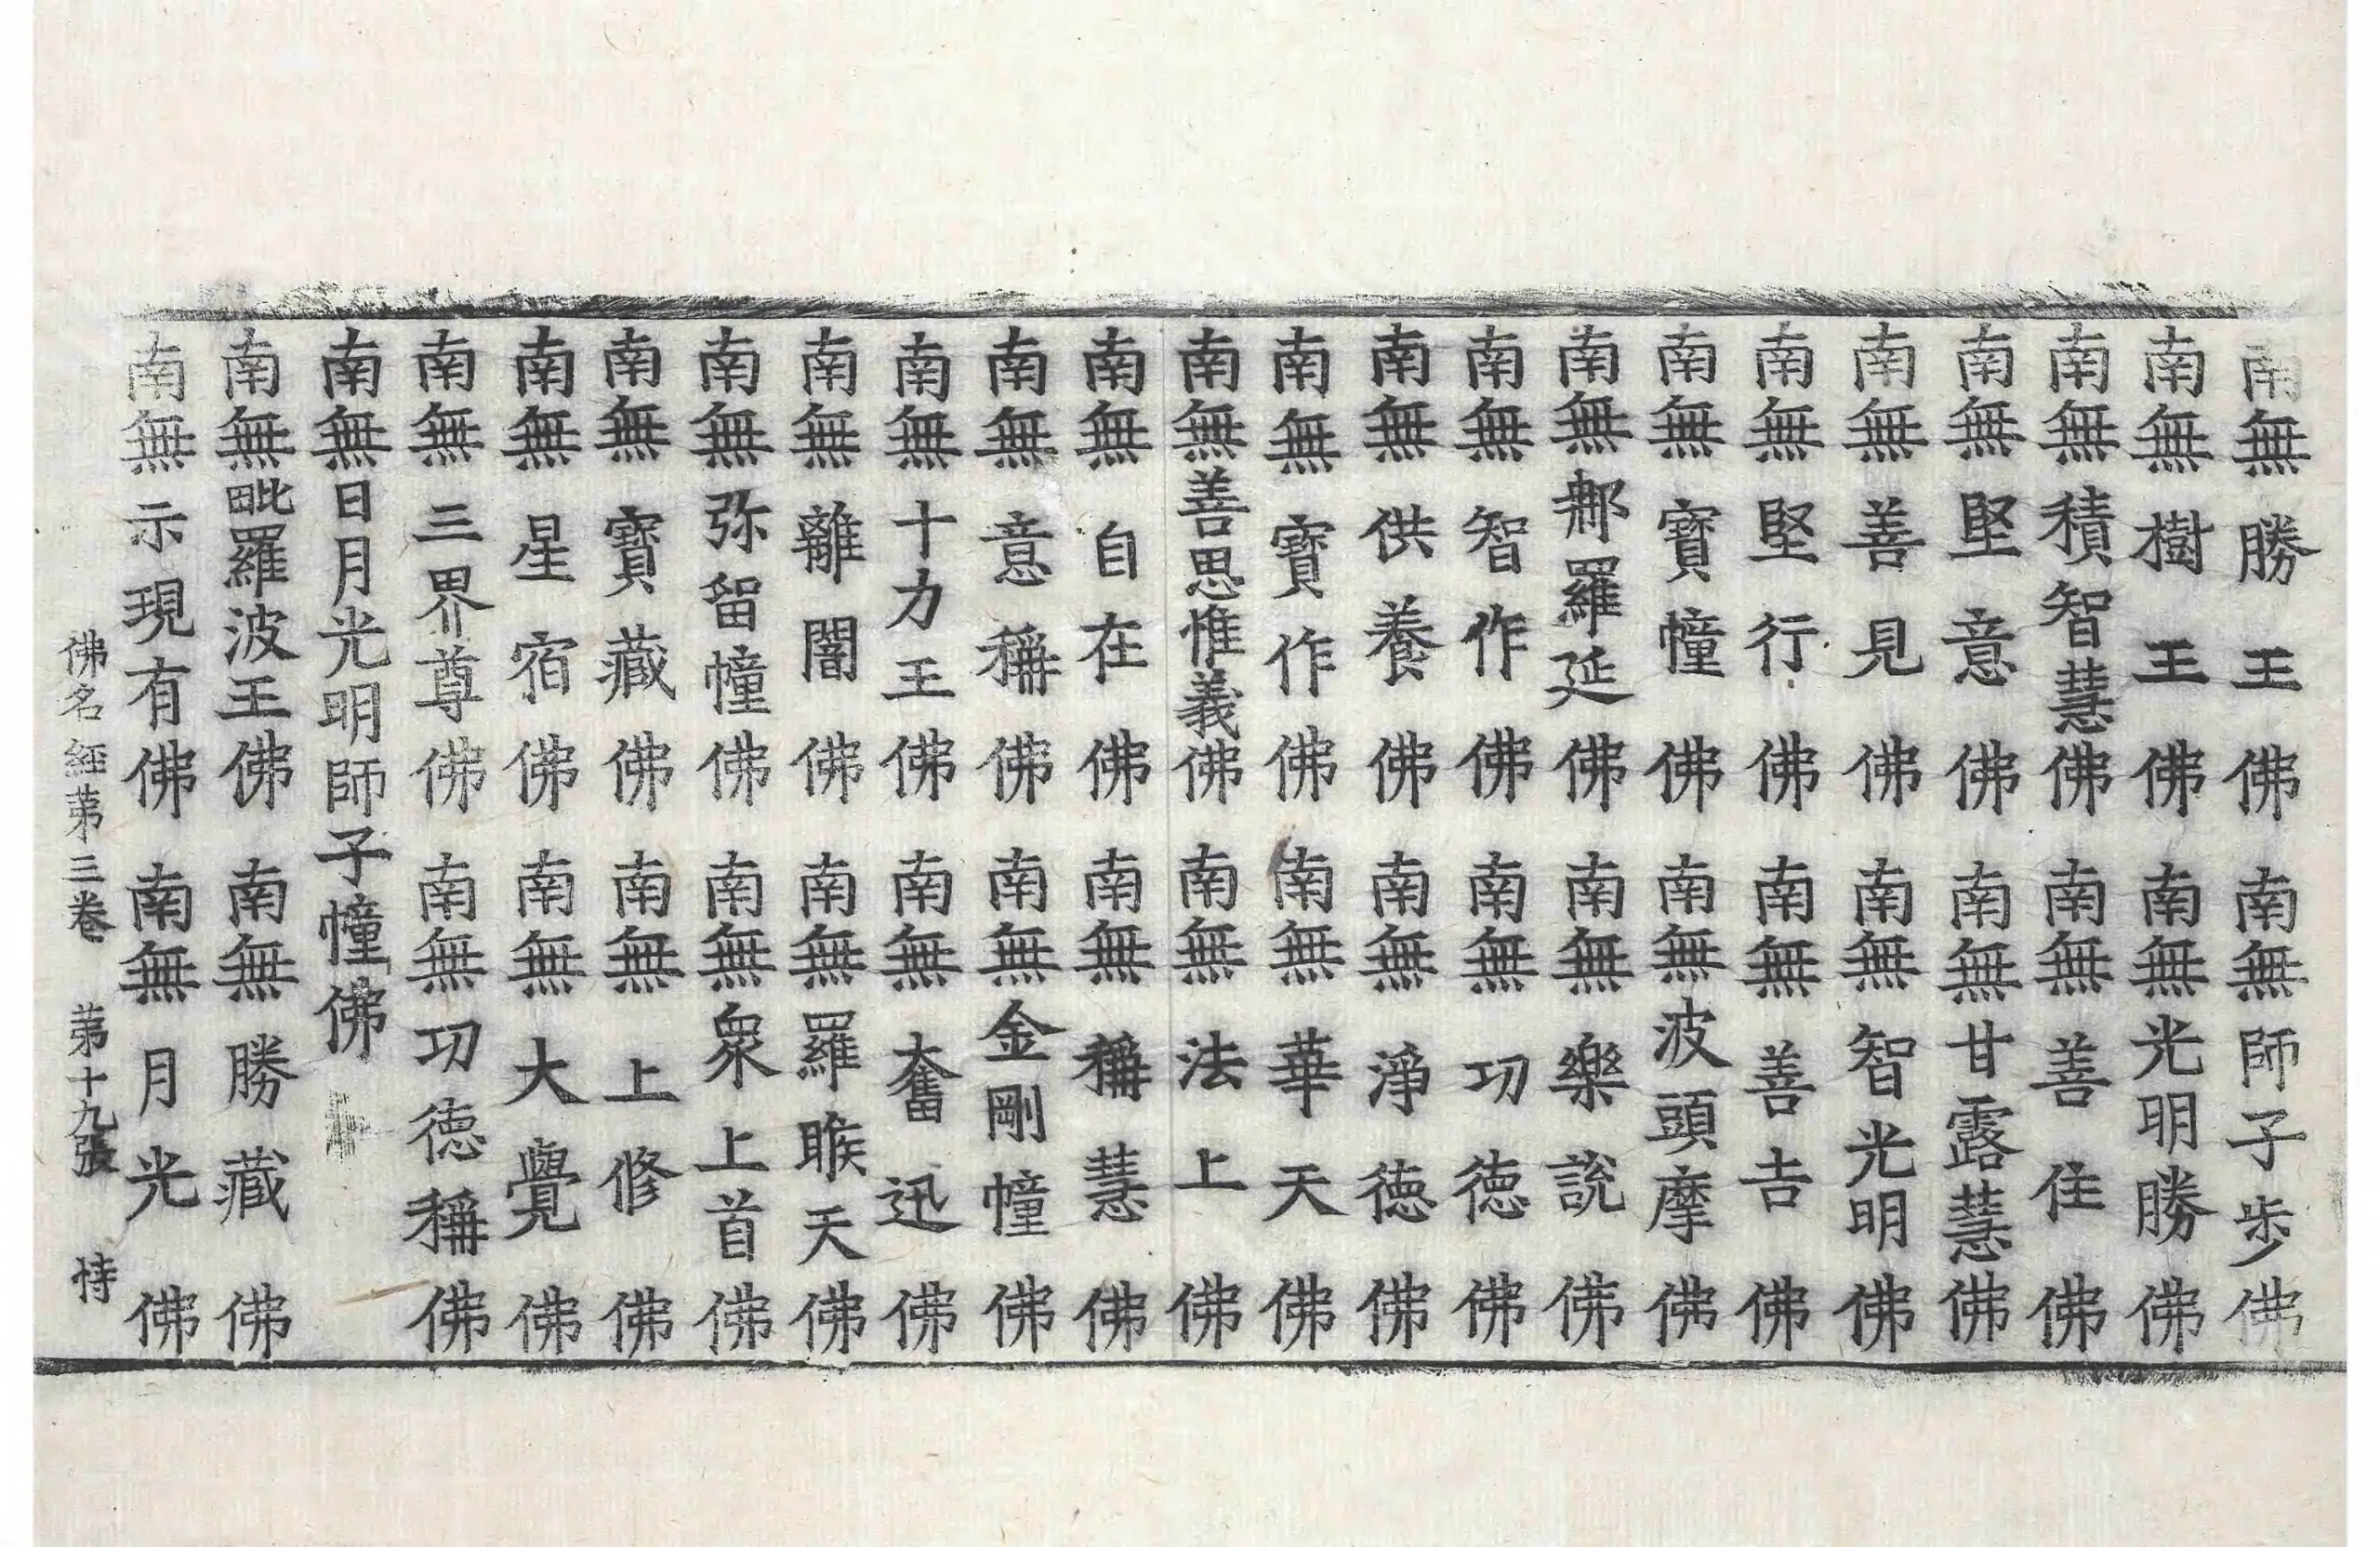 南無勝王佛 南無師子步佛
南無樹王佛 南無光明勝佛
南無積智慧佛 南無善住佛
南無堅意佛 南無甘露慧佛
南無善見佛 南無智光明佛
南無堅行佛 南無善吉佛
南無寶幢佛 南無波頭摩佛
南無那羅延佛 南無樂說佛
南無智作佛 南無功德佛
南無供養佛 南無淨德佛
南無寶作佛 南無華天佛
南無善思惟義佛 南無法上佛
南無自在佛 南無稱慧佛
南無意稱佛 南無金剛幢佛
南無十力王佛 南無奮迅佛
南無離闇佛 南無羅睺天佛
南無弥留幢佛 南無衆上首佛
南無寶藏佛 南無上修佛
南無星宿佛 南無大覺佛
南無三界尊佛 南無功德稱佛
南無日月光明師子幢佛
南無毗羅波王佛 南無勝藏佛
南無示現有佛 南無月光佛
佛名經第三卷 第十九張 恃